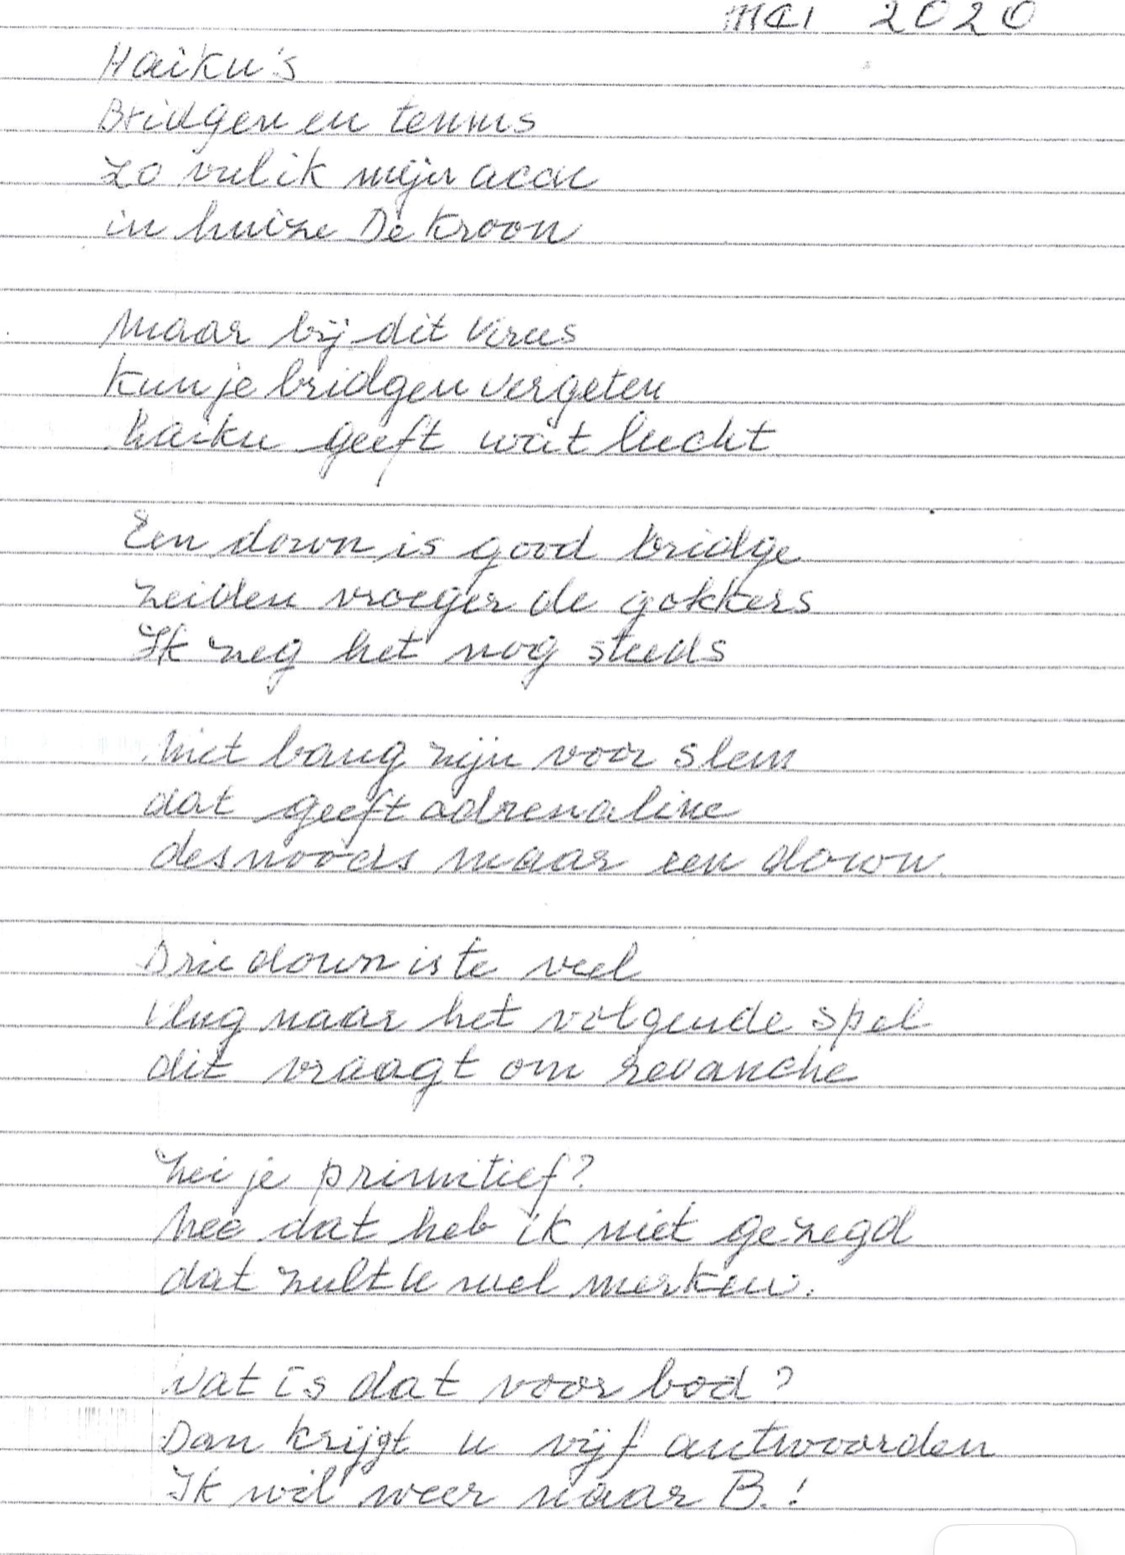 mei 2020
Haiku's
Bridgen en tennis
zo vul ik mijn
in huize De Kroon
Maar bij dit virus
kun je bridgen vergeten
haiku geeft wat lucht
Een down is good bridge
zeiden vroeger de gokkers
Ik zeg het nog steeds
Niet bang zijn voor slem
dat geeft adrenaline
desnoods maar een down.
Drie down is te veel
Vlug naar het volgende spel
dit vraagt om revanche
Zei je primitief?
Nee dat heb ik niet gezegd
dat zult U wel merken.
Wat is dat voor bod?
Dan krijgt u vijf antwoorden
Ik wil weer naar B.!